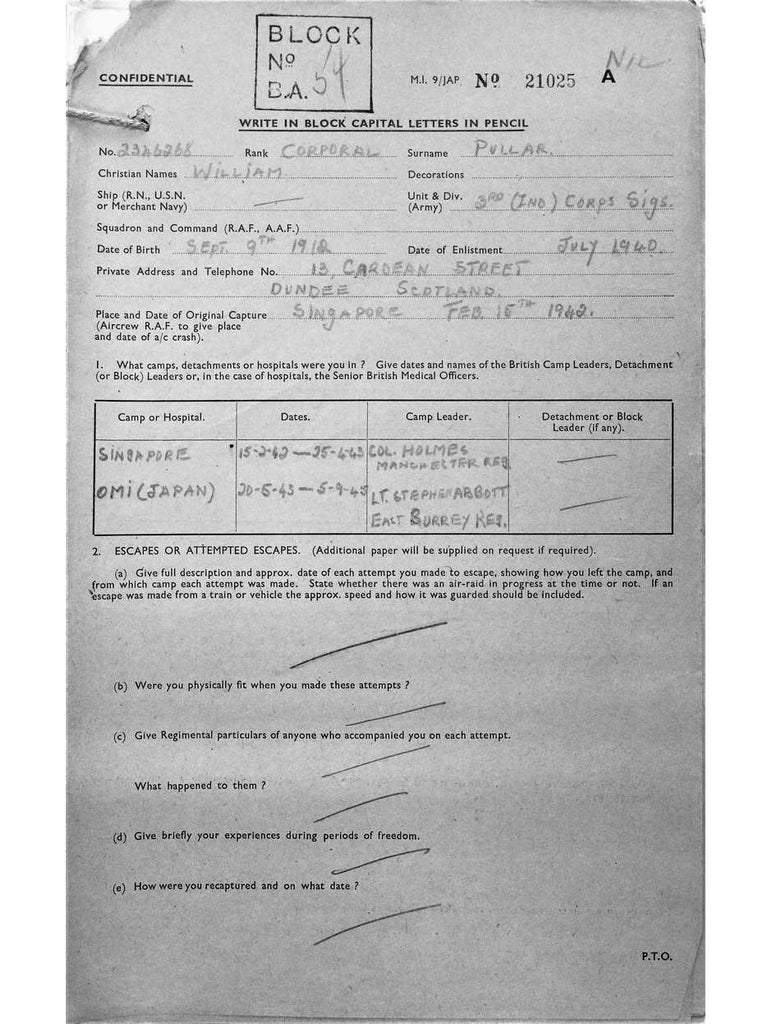 BLOCK
Nº
B.A. 54
CONFIDENTIAL
M.I. 9/JAP Nº 21025 A
NIL
WRITE IN BLOCK CAPITAL LETTERS IN PENCIL
No. 2346268 Rank CORPORAL Surname PULLAR.
Christian Names WILLIAM Decorations
Ship (R.N., U.S.N. or Merchant Navy) — Unit & Div. (Army) 3RD (IND) CORPS SIGS.
Squadron and Command (R.A.F., A.A.F.)
Date of Birth SEPT. 9TH 1912 Date of Enlistment JULY 1940.
Private Address and Telephone No. 13, CARDEAN STREET
DUNDEE SCOTLAND.
Place and Date of Original Capture SINGAPORE FEB. 15TH 1942.
(Aircrew R.A.F. to give place
and date of a/c crash).
1. What camps, detachments or hospitals were you in ? Give dates and names of the British Camp Leaders, Detachment
(or Block) Leaders or, in the case of hospitals, the Senior British Medical Officers.
Camp or Hospital. Dates. Camp Leader. Detachment or Block Leader (if any).
SINGAPORE 15-2-42 — 25-4-43 COL. HOLMES MANCHESTER REG —
OMI (JAPAN) 20-5-43 — 5-9-45 LT. STEPHEN ABBOTT EAST SURREY REG. —
2. ESCAPES OR ATTEMPTED ESCAPES. (Additional paper will be supplied on request if required).
(a) Give full description and approx. date of each attempt you made to escape, showing how you left the camp, and
from which camp each attempt was made. State whether there was an air-raid in progress at the time or not. If an
escape was made from a train or vehicle the approx. speed and how it was guarded should be included.
(b) Were you physically fit when you made these attempts ?
(c) Give Regimental particulars of anyone who accompanied you on each attempt.
What happened to them ?
(d) Give briefly your experiences during periods of freedom.
(e) How were you recaptured and on what date ?
P.T.O.